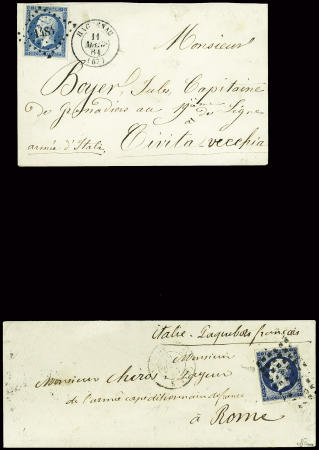 1485
HAGUENAU
11
MARS
61
(67)
Monsieur
Boyer, Jules, Capitaine
de grenadiers au 19ième de Ligne
à
armée d'Italie
Civita-vecchia
Italie - Paquebots français
Monsieur
Monsieur Payeur
de l'armée expéditionnaire de france
à Rome